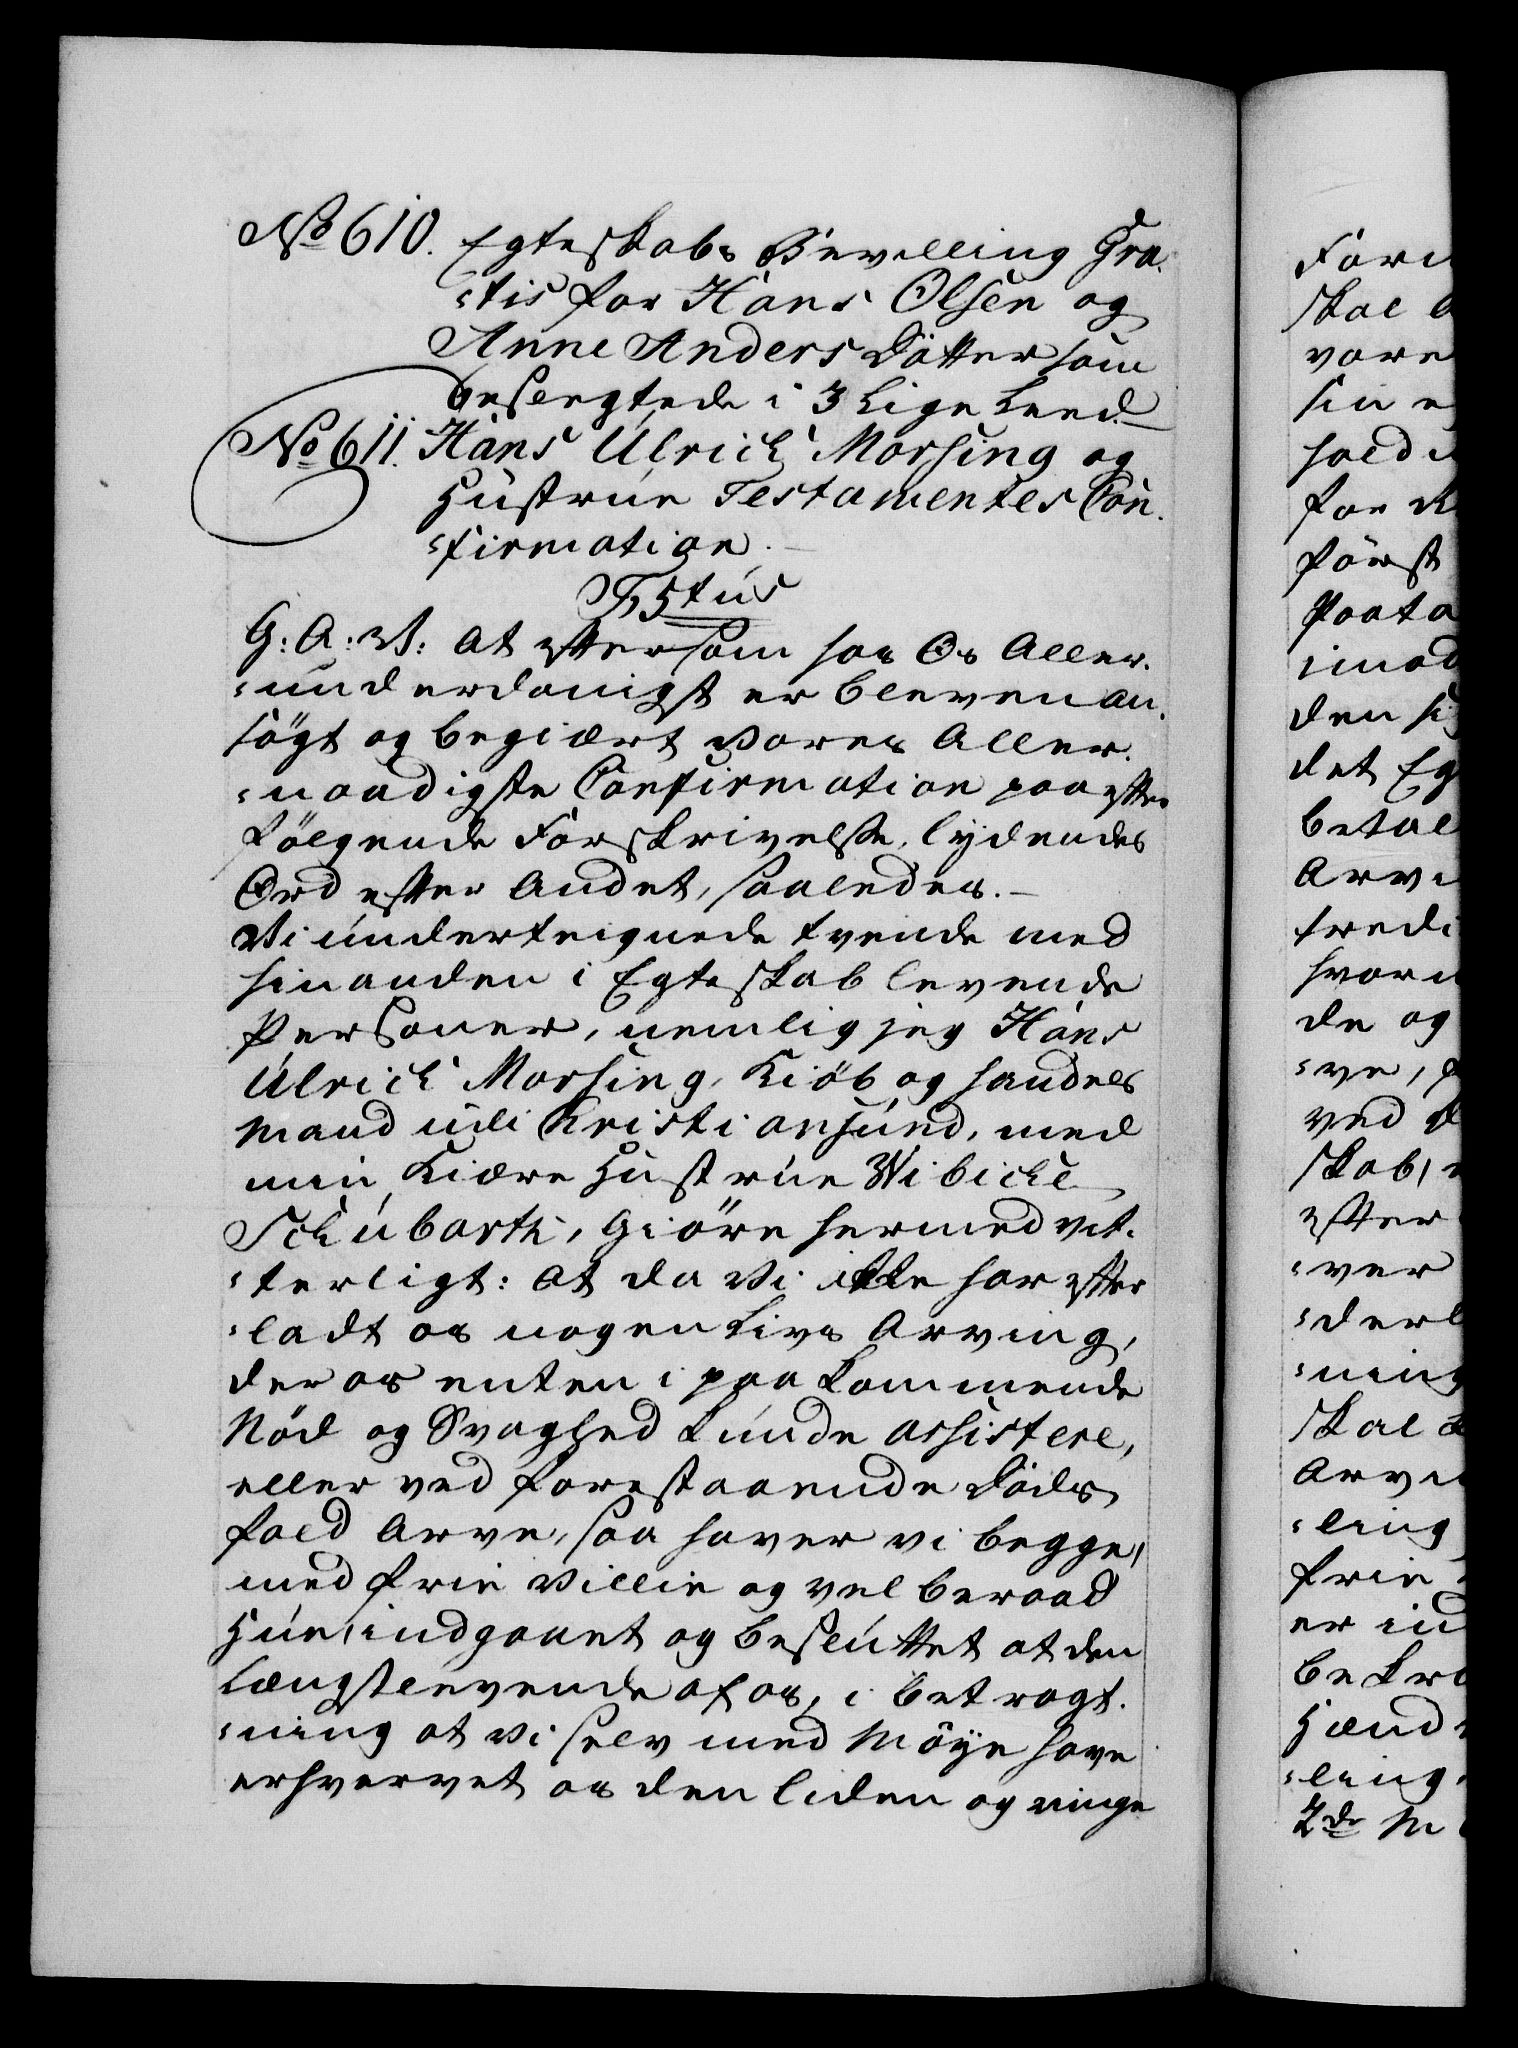 No 610. Egteskabs Bevilling Gra-
-tis for Hans Olsen og
Anne Anders Dotter som
beslegtede i 3 Lige Leed.
No 611. Hans Ulrich Morsing og
Hustrue Testamentes Con-
-firmation.
F, 5tus
G: A: V: At eftersom hos Os Aller-
-underdanigst er bleven an-
søgt og begiært Vores Aller-
-naadigste Confirmation paa efter
følgende Forskrivelse, lydendes
Ord efter Andet, saaledes.
Vi underteignede tvende med
hinanden i Egteskab levende
Personer, nemlig jeg Hans
Ulrich Morsing, Kiøb og Handels
Mand udi Christiansund, med
min Kiære Hustrue Wibicke
Schubarth, Giøre hermed vit-
-terligt: At da Vi ikke har efter
-ladt os nogen Livs Arving,
der os enten i paa kommende
Nød og Svaghed kunde assistere,
eller ved forestaaende Døds
fald Arve, saa haver vi begge,
med frie Villie og vel beraad
Hue, indgaaet og besluttet at den
Længstlevende af os, i betragt-
-ning at Vi selv med Møye have
erhvervet os den liden og ringe